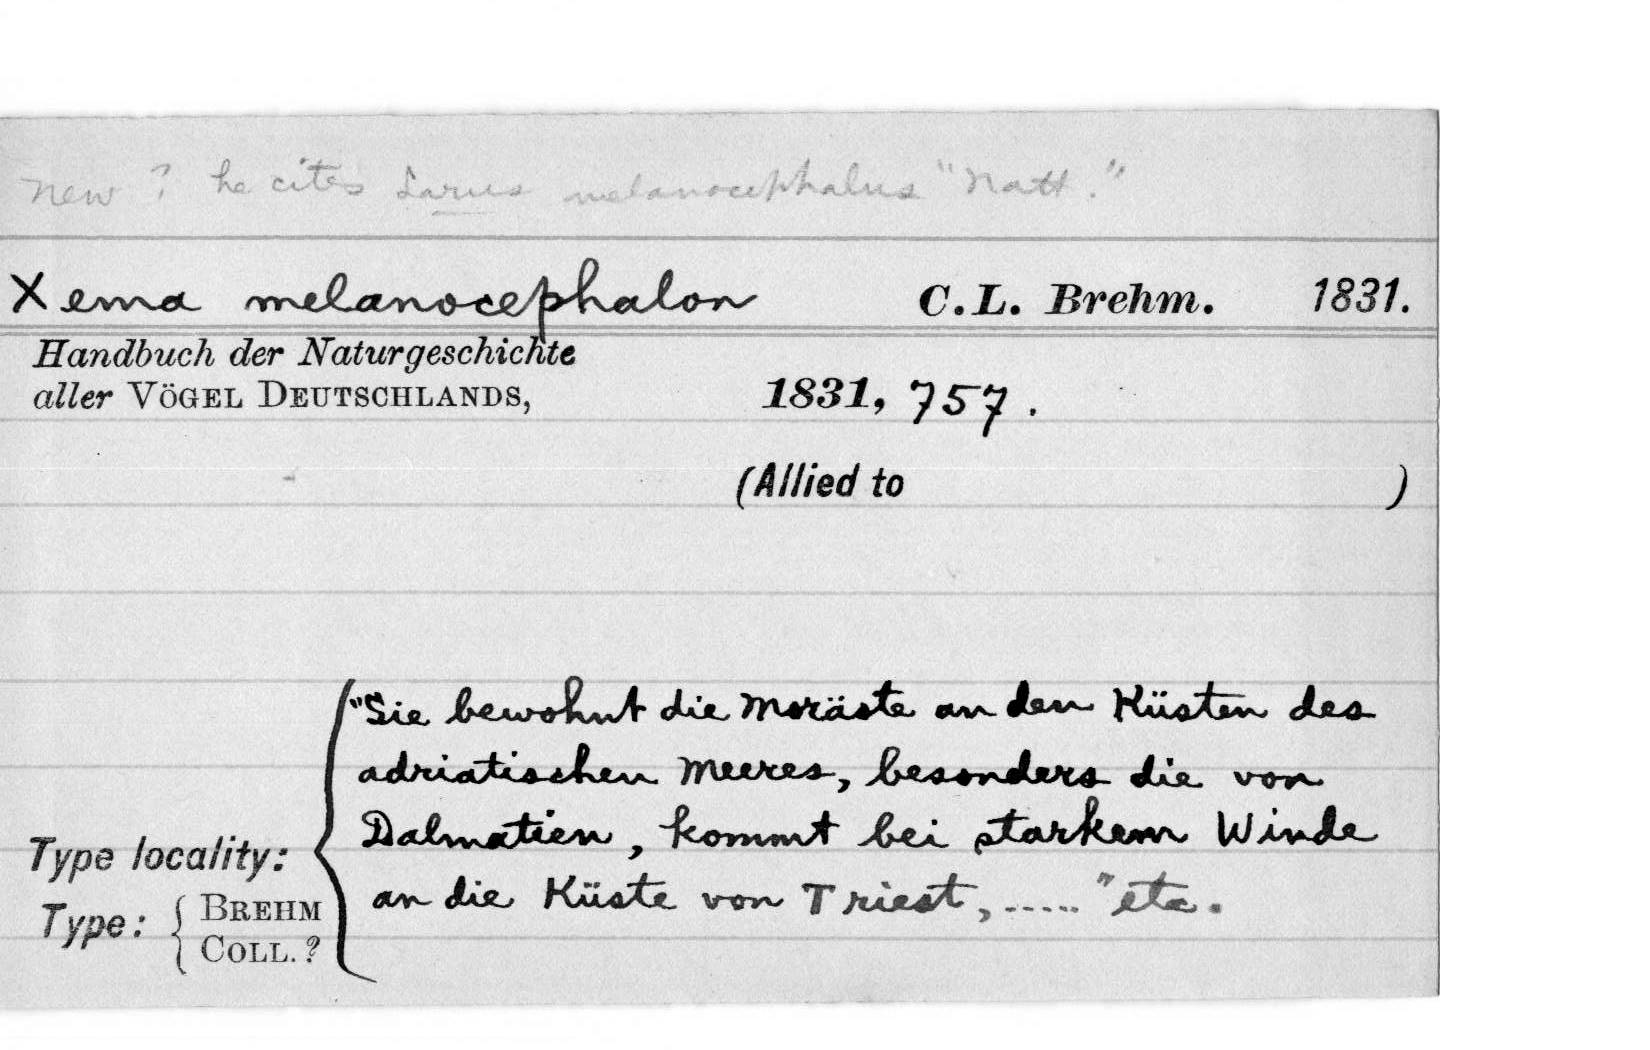 New ? he cites Larus melanocephalus "Natt."
Xema melanocephalon C.L. Brehm. 1831.
Handbuch der Naturgeschichte
aller VÖGEL DEUTSCHLANDS, 1831, 757.
(Allied to )
"Sie bewohnt die Moräste an den Küsten des
adriatischen Meeres, besonders die von
Dalmatien, kommt bei starkem Winde
an die Küste von Triest, ....." etc.
Type locality:
Type: { BREHM
COLL. ?